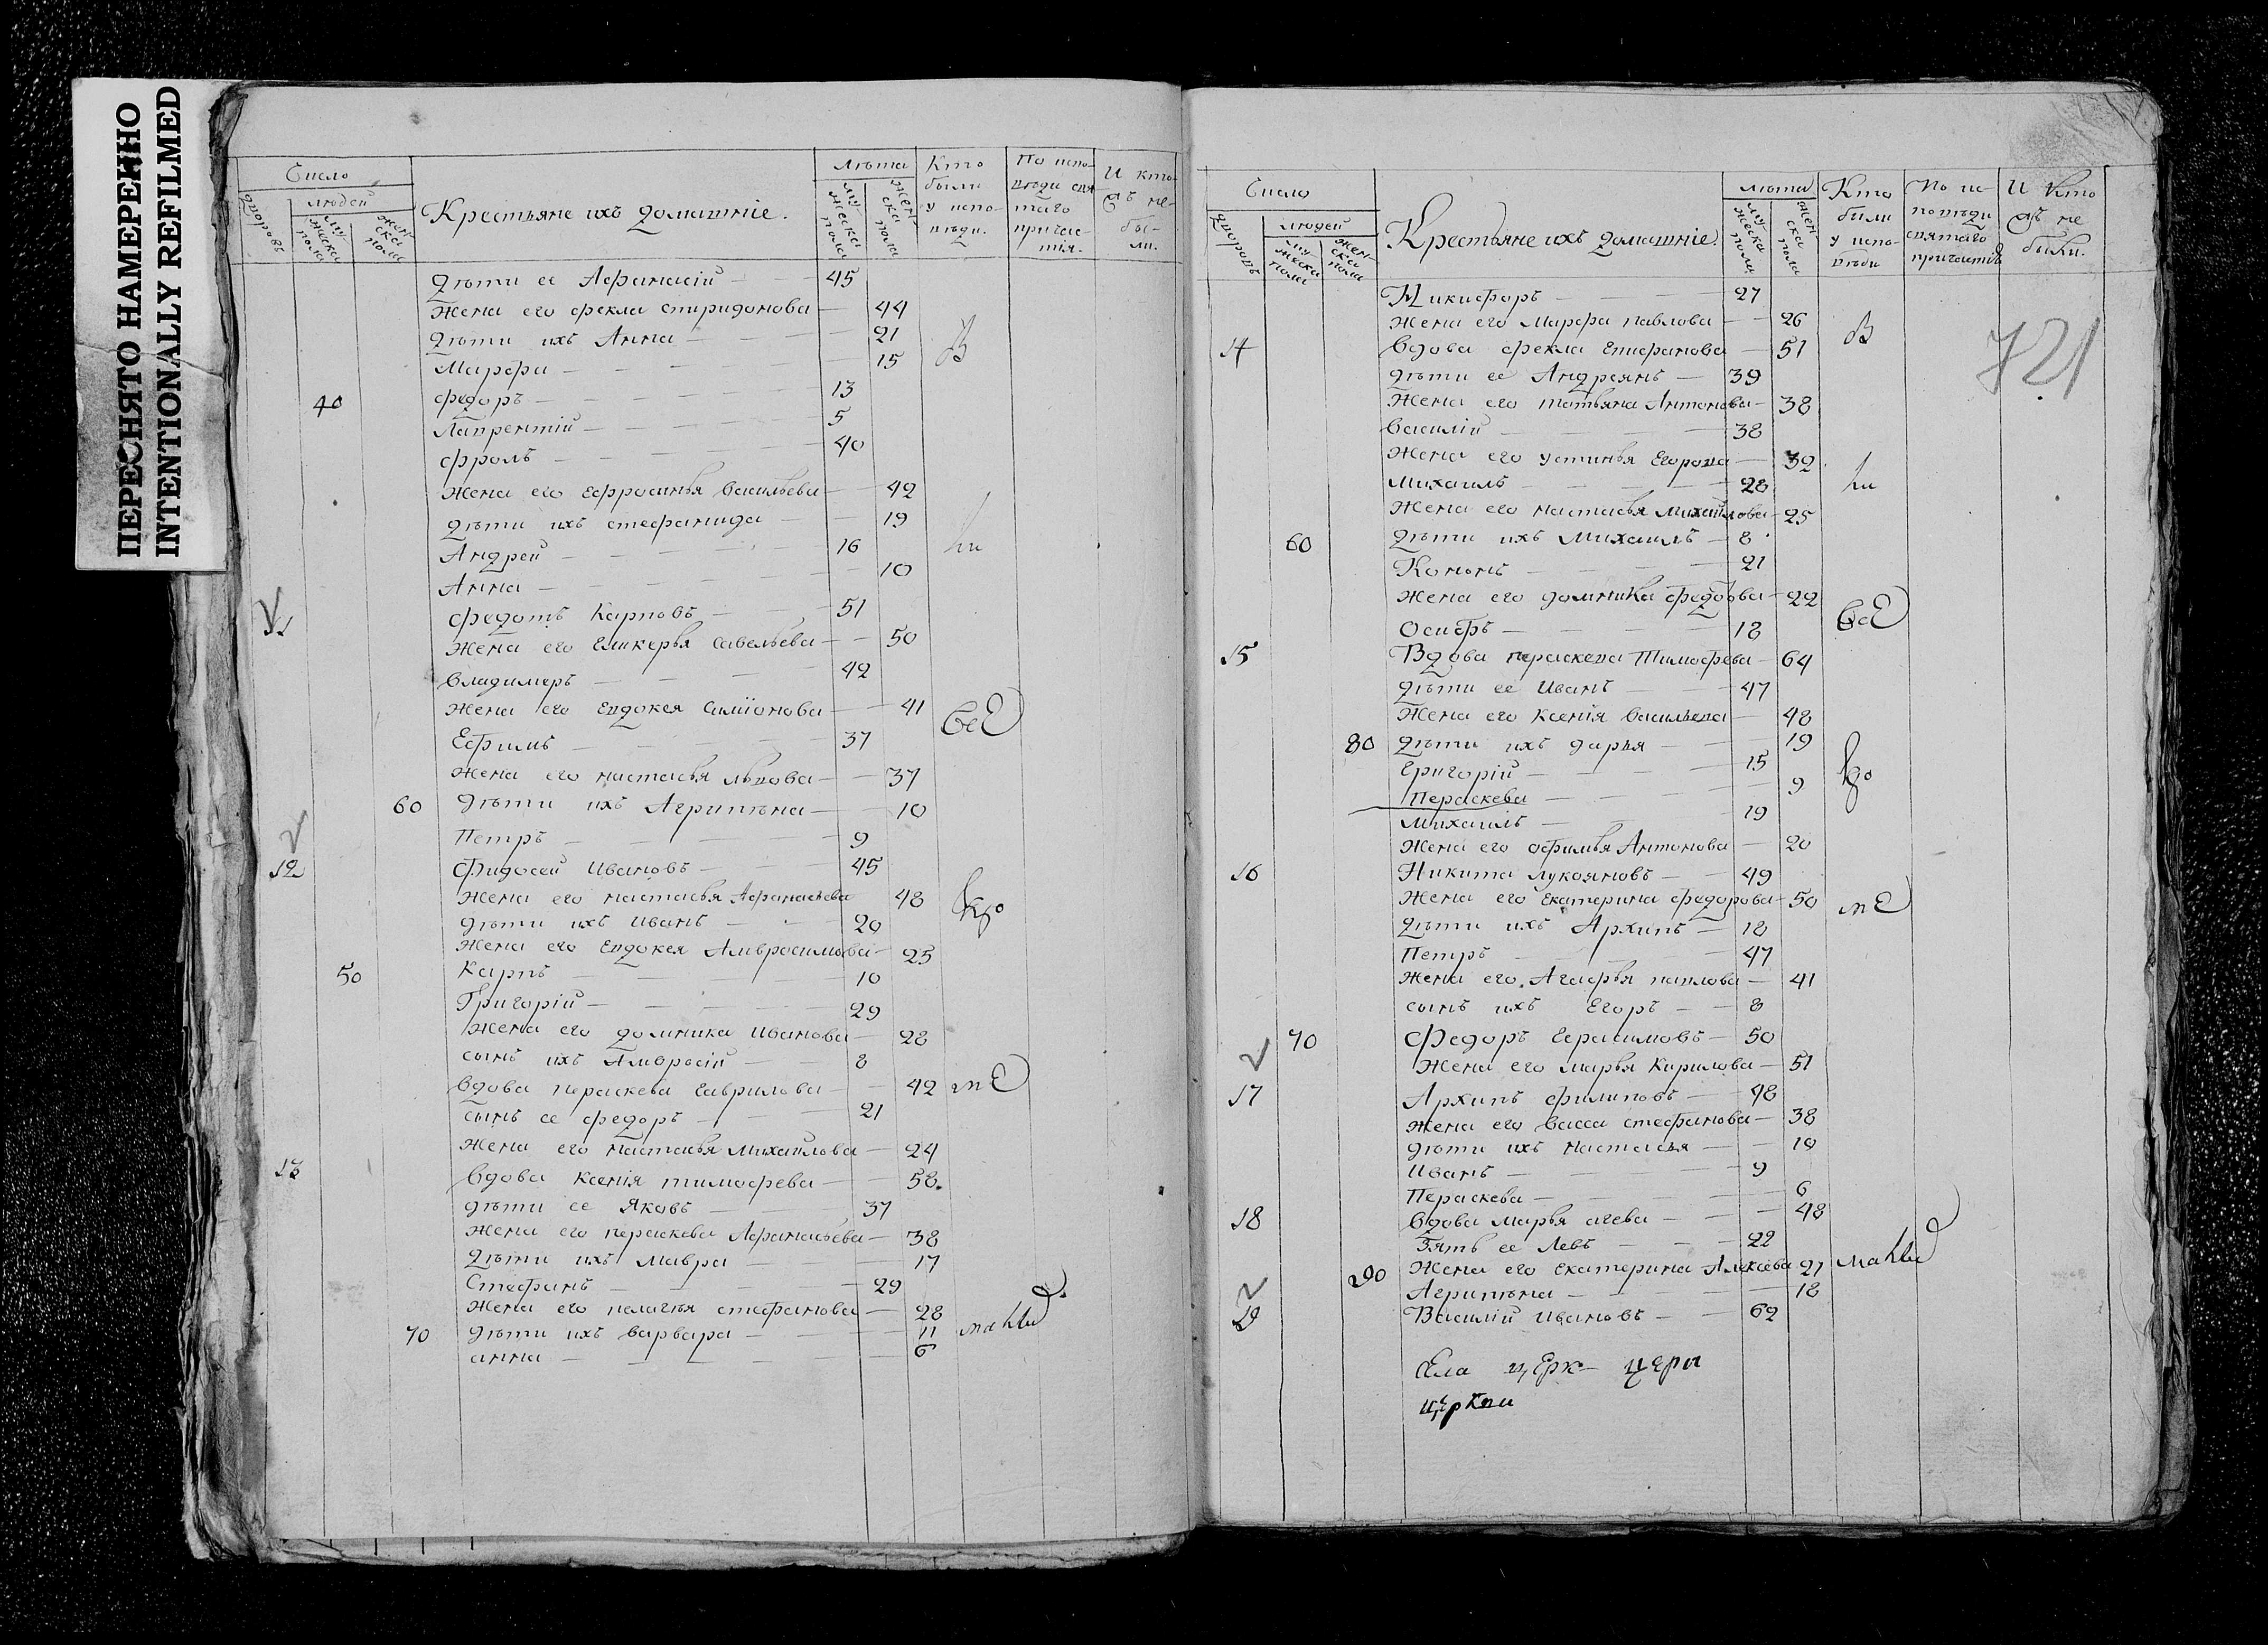 ПЕРЕСНЯТО НАМЕРЕННО
INTENTIONALLY REFILMED
Число
дворовъ
людей
мужеска пола
женска пола
Крестьяне ихъ домашніе.
Лѣта
мужеска пола
женска пола
Кто были у исповѣди.
По исповѣди святаго причастія.
И кто не были.
дѣти ее Афанасій 45
Жена его Фекла спиридонова 44
дѣти ихъ Анна 21
Марфа 15
40 Федоръ 13
Лаврентій 5
Фролъ 40
Жена его Ефросинья Васильева 42
дѣти ихъ стефанида 19
Андрей 16
Анна 10
Федотъ Карповъ 51
Жена его Гликерья Савельева 50
Владимеръ 42
Жена его Евдокея Симіонова 41
Ефимъ 37
Жена его настасья львова 37
60 дѣти ихъ Агрипѣна 10
Петръ 9
12 Фидосей Ивановъ 45
Жена его настасья Афанасьева 48
дѣти ихъ Иванъ 20
Жена его Евдокея Амвросимова 25
50 Карпъ 10
Григорій 29
Жена его домника Иванова 28
сынъ ихъ Амвросій 8
Вдова параскева Гаврилова 42
сынъ ее федоръ 21
Жена его Настасья Михайлова 24
13 Вдова Ксенія тимофева 58
дѣти ее Яковъ 37
Жена его параскева Афанасьева 38
дѣти ихъ мавра 17
Стефанъ 29
Жена его пелагья стефанова 28
70 дѣти ихъ варвара 11
анна 6
721
Число
дворовъ
людей
мужеска пола
женска пола
Крестьяне ихъ домашніе.
лѣта
мужеска пола
женска пола
Кто были у исповѣди
По исповѣди святаго причастія
И кто не были.
Никифоръ 27
Жена его Марфа павлова 26
14 Вдова Фекла Епифанова 51
дѣти ее Андреянъ 39
Жена его татьяна Антонова 38
Василій 38
Жена его устинья Егорова 32
Михаилъ 28
Жена его настасья михайлова 25
60 дѣти ихъ Михаилъ 8
Кононъ 21
Жена его домника Федорова 22
Осифъ 18
15 Вдова параскева Тимофева 64
дѣти ее Иванъ 47
Жена его Ксенія Васильева 48
80 дѣти ихъ дарья 19
Григорій 15
Параскева 9
Михаилъ 19
Жена его офимья Антонова 20
16 Никита лукояновъ 49
Жена его Екатерина федорова 50
дѣти ихъ Архипъ 18
Петръ 47
Жена его Агафья павлова 41
сынъ ихъ Егоръ 8
70 Федоръ Герасимовъ 50
Жена его марья Кирилова 51
17 Архипъ филиповъ 48
жена его васса стефанова 38
дѣти ихъ настасья 10
Иванъ 9
Параскева 6
18 Вдова марья агева 48
Зять ее Левъ 22
290 Жена его екатерина Алексева 21
Агрипѣна 18
19 Василій Ивановъ 62
села церк цери
церкви